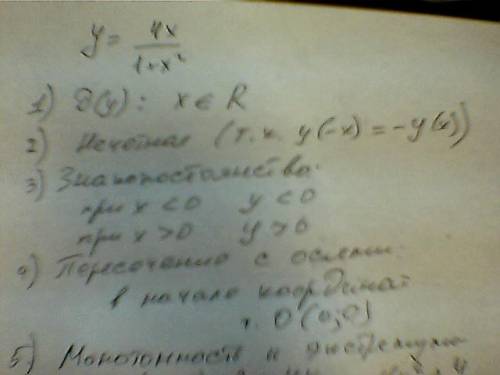 y = 4x / 1+x²
1) D(y): x ∈ R
2) Нечетная (т.к. y(-x) = -y(x))
3) Знакопостоянство.
при x < 0 y < 0
при x > 0 y > 0
4) Пересечение с осями:
в начале координат
т. O (0;0)
5) Монотонность и экстремумы